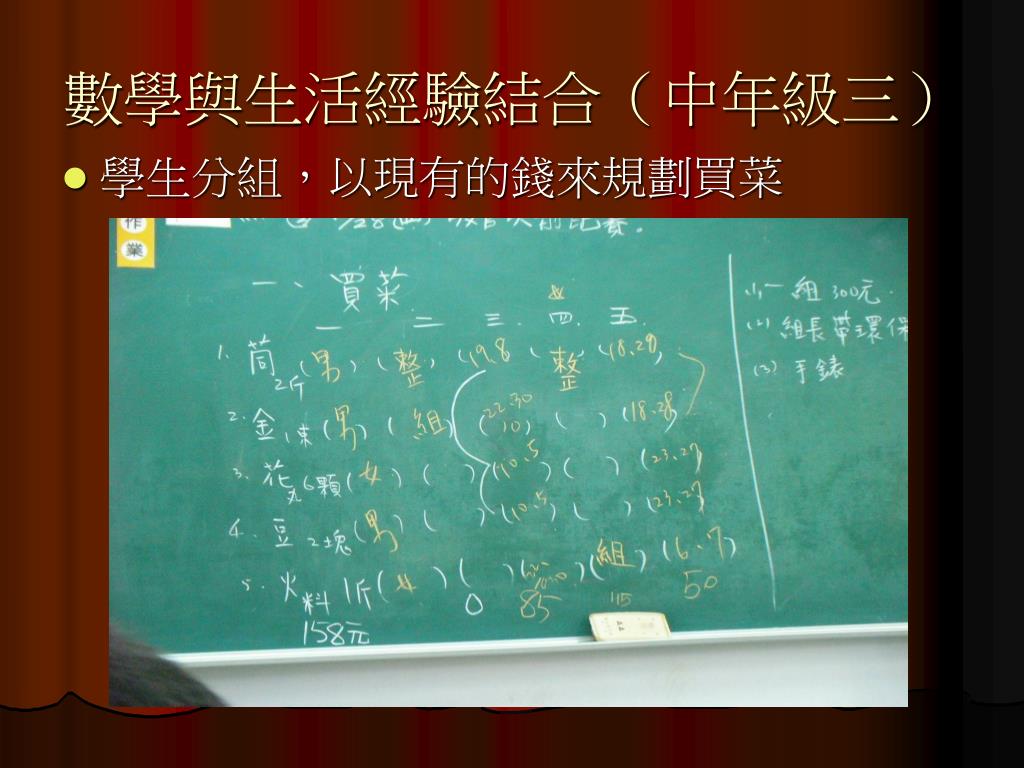 數學與生活經驗結合（中年級三）
學生分組，以現有的錢來規劃買菜
作
業
一、買菜
女
一 二 三. 四. 五.
1. 茼 2斤 (男) (整) (19、8 ( 整 ) (18、29)
2. 金 1束 (男) (組) (22、30 10) ( ) (18、28)
3. 花丸6顆 (女) ( ) (10、5) ( ) (23、27)
4. 豆 2塊 (男) ( ) (10、5) ( ) (23、27)
5. 火料 1斤 (女) ( ) ( ) (組) (6、7)
158元 0 85 115 50
(1) 一組 300元.
(2) 組長帶環保
(3) 手錶